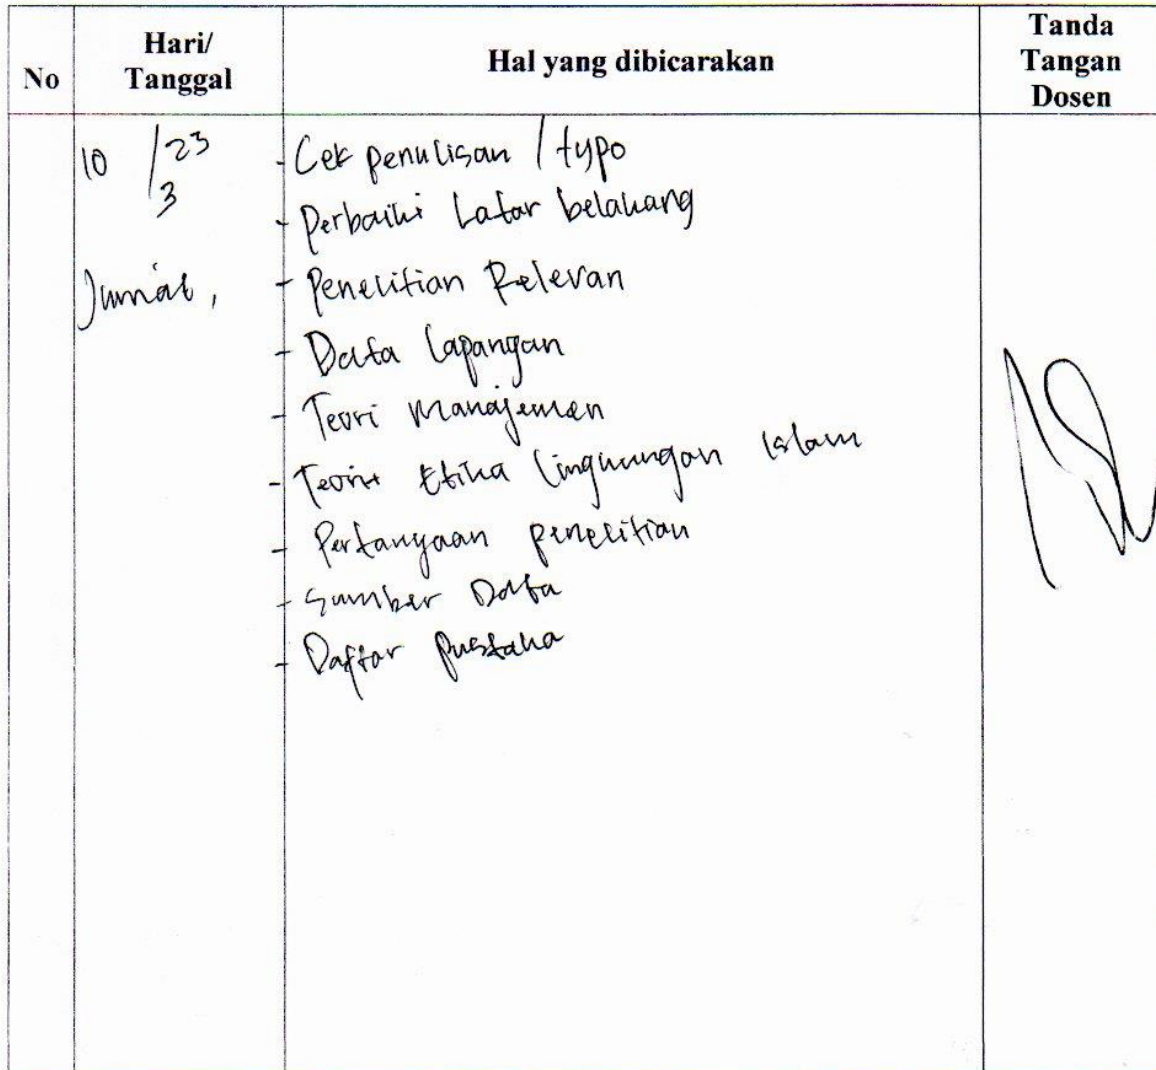 No
Hari/
Tanggal
Hal yang dibicarakan
Tanda
Tangan
Dosen
10 / 23
3
Jumat,
- Cek penulisan / typo
- Perbaiki Latar belakang
- Penelitian Relevan
- Data Lapangan
- Teori Manajemen
- Teori Etika Lingkungan Islam
- Pertanyaan penelitian
- Sumber Data
- Daftar pustaka